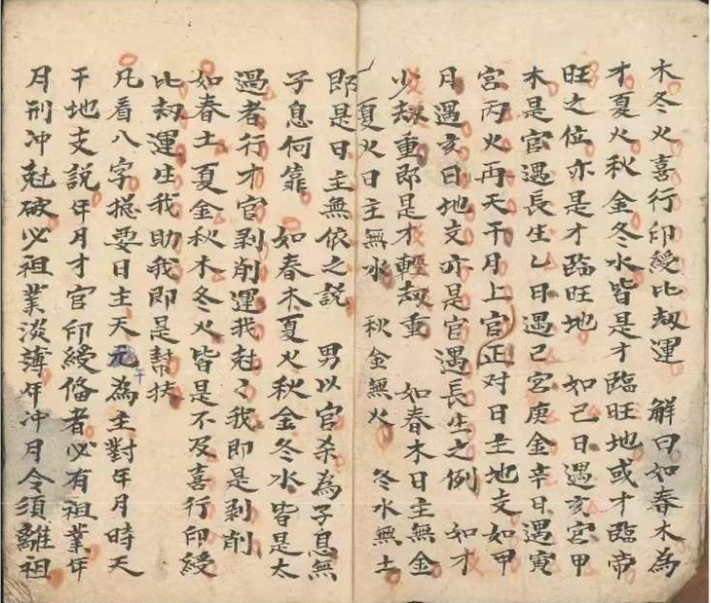 木冬火喜行印綬比劫運　解曰如春木為
才夏火秋金冬水皆是才臨旺地或才臨帝
旺之位亦是才臨旺地　如己日遇亥宮甲
木是官遇長生乙日遇己宮庚金辛日遇寅
宮丙火再天干月上官正对日主地支如甲
月遇亥日地支亦是官遇長生之例　如才
少劫重即是才輕劫重　如春木日主無金
夏火日主無水　秋金無火　冬水無土
即是日主無依之説　男以官杀為子息無
子息何靠　如春木夏火秋金冬水皆是太
過者行才官剥削運我尅々我即是剥削
如春土夏金秋木冬火皆是不及喜行印綬
比劫運生我助我即是幫扶
凡看八字搃要日主天元為主對年月時天
干
干地支説年月才官印綬俻者必有祖業年
月刑冲尅破必祖業淡薄年冲月令須離祖